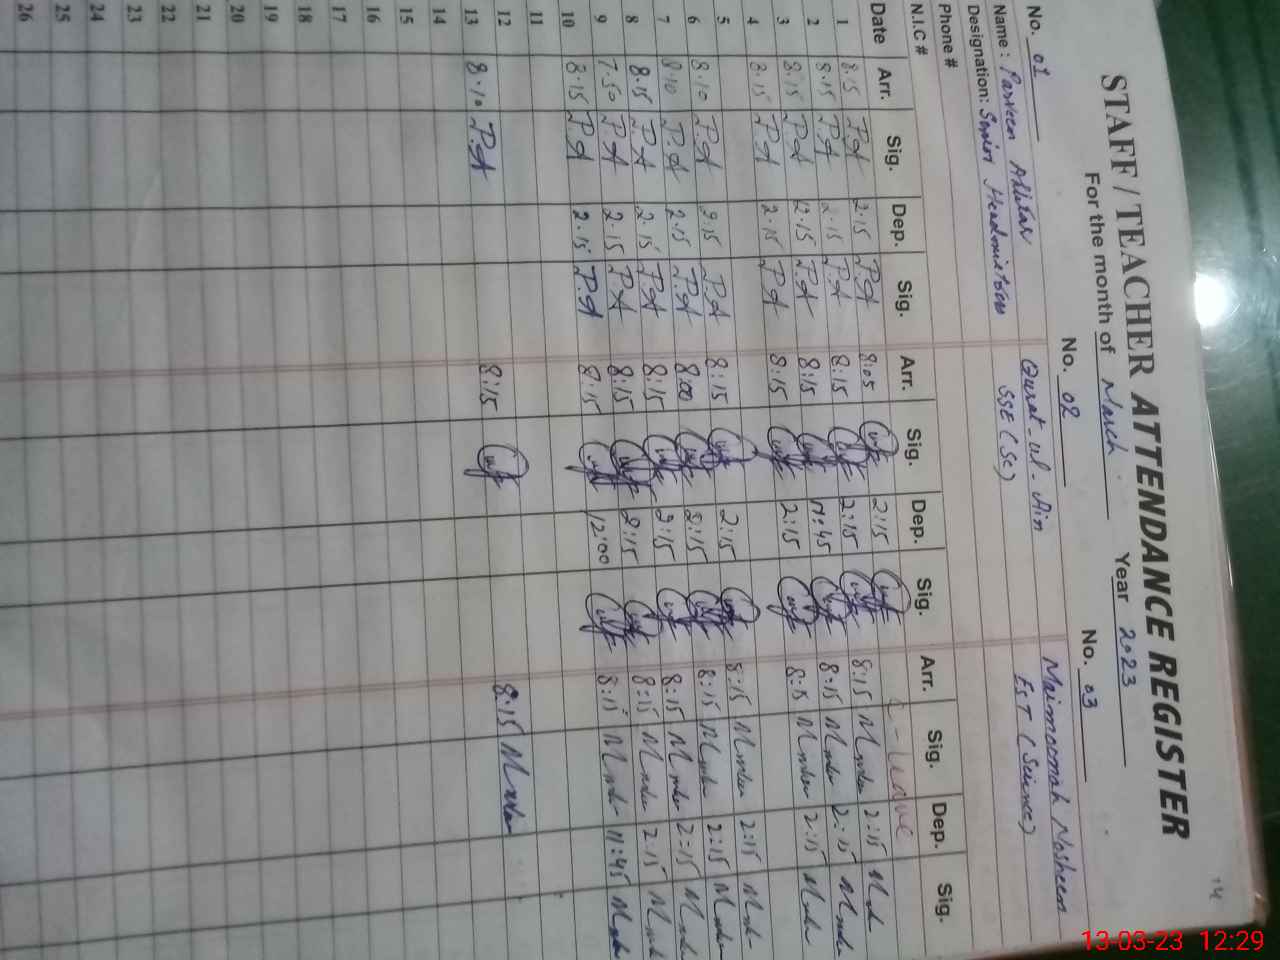 STAFF / TEACHER ATTENDANCE REGISTER
For the month of March Year 2023
No. 01 No. 02 No. 03
Name : Parveen Akhtar Qurat-ul-Ain Maimoonah Nosheen
Designation: Senior Headmistress SSE (Sc) EST (Science)
Phone #
N.I.C #
Date Arr. Sig. Dep. Sig. Arr. Sig. Dep. Sig. Arr. Sig. Dep. Sig.
1 8.15 P.A 2.15 P.A 8:05 2:15 C-Leave
2 8.15 P.A 2.15 P.A 8:15 2:15 8:15 2:15
3 8.15 P.A 12.15 P.A 8:15 12:45 8:15 2:15
4 8.15 P.A 2.15 P.A 8:15 2:15 8:15 2:15
5
6 8.10 P.A 2.15 P.A 8:15 2:15 8:15 2:15
7 8.10 P.A 2.15 P.A 8:00 2:15 8:15 2:15
8 8.15 P.A 2.15 P.A 8:15 2:15 8:15 2:15
9 7.50 P.A 2.15 P.A 8:15 2:15 8:15 2:15
10 8.15 P.A 2.15 P.A 8:15 12:00 8:15 11:45
11
12
13 8.10 P.A 8:15 8:15
14
15
16
17
18
19
20
21
22
23
24
25
26
13-03-23 12:29